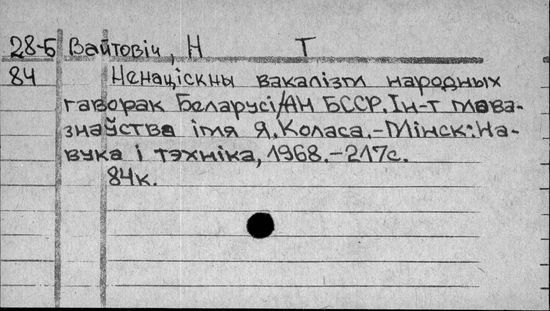 28-Б Вайтовіч, Н Т
84 Ненаціскны вакалізм народных
гаворак Беларусі/АН БССР. Ін-т мова-
знаўства імя Я. Коласа.-Мінск: На-
вука і тэхніка, 1968.-217с.
84к.